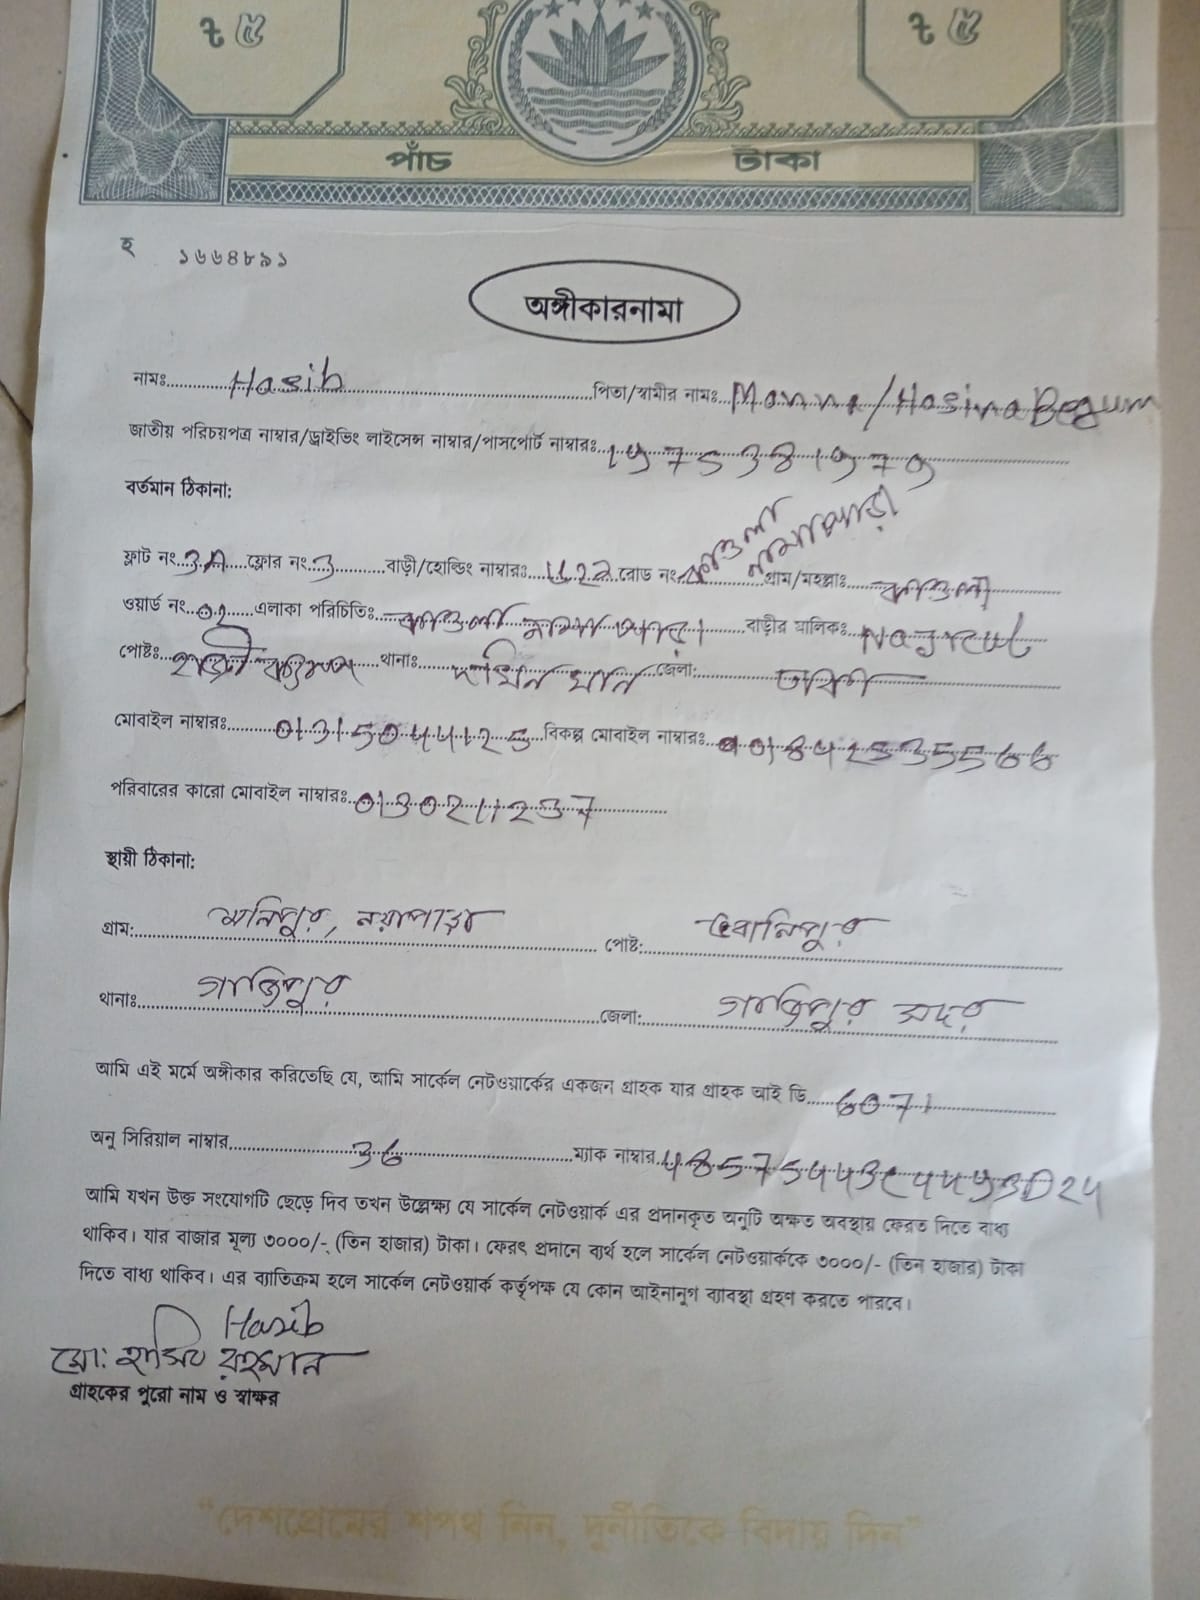 ট ৫ ট ৫
পাঁচ টাকা
হ ১৬৬৪৮৯১
অঙ্গীকারনামা
নামঃ Hasib পিতা/স্বামীর নামঃ Manna/Hasina Begum
জাতীয় পরিচয়পত্র নাম্বার/ড্রাইভিং লাইসেন্স নাম্বার/পাসপোর্ট নাম্বারঃ
বর্তমান ঠিকানা:
ফ্লাট নং 3A ফ্লোর নং 3 বাড়ী/হোল্ডিং নাম্বারঃ রোড নং কাওলা নামাপাড়া গ্রাম/মহল্লাঃ কাওলা
ওয়ার্ড নং 02 এলাকা পরিচিতিঃ কাওলা নামাপাড়া বাড়ীর মালিকঃ Najrul
পোষ্টঃ থানাঃ দক্ষিন খান জেলা: ঢাকা
মোবাইল নাম্বারঃ 01315044125 বিকল্প মোবাইল নাম্বারঃ 01842535566
পরিবারের কারো মোবাইল নাম্বারঃ
স্থায়ী ঠিকানা:
গ্রাম: মনিপুর, নয়াপাড়া পোষ্ট: ভবানিপুর
থানাঃ গাজিপুর জেলা: গাজিপুর সদর
আমি এই মর্মে অঙ্গীকার করিতেছি যে, আমি সার্কেল নেটওয়ার্কের একজন গ্রাহক যার গ্রাহক আই ডি 6071
অনু সিরিয়াল নাম্বার 36 ম্যাক নাম্বার
আমি যখন উক্ত সংযোগটি ছেড়ে দিব তখন উল্লেক্ষ্য যে সার্কেল নেটওয়ার্ক এর প্রদানকৃত অনুটি অক্ষত অবস্থায় ফেরত দিতে বাধ্য
থাকিব। যার বাজার মূল্য ৩০০০/- (তিন হাজার) টাকা। ফেরৎ প্রদানে ব্যর্থ হলে সার্কেল নেটওয়ার্ককে ৩০০০/- (তিন হাজার) টাকা
দিতে বাধ্য থাকিব। এর ব্যাতিক্রম হলে সার্কেল নেটওয়ার্ক কর্তৃপক্ষ যে কোন আইনানুগ ব্যাবস্থা গ্রহণ করতে পারবে।
Hasib
মো: হাসিব রহমান
গ্রাহকের পুরো নাম ও স্বাক্ষর
"দেশপ্রেমের শপথ নিন, দুর্নীতিকে বিদায় দিন"